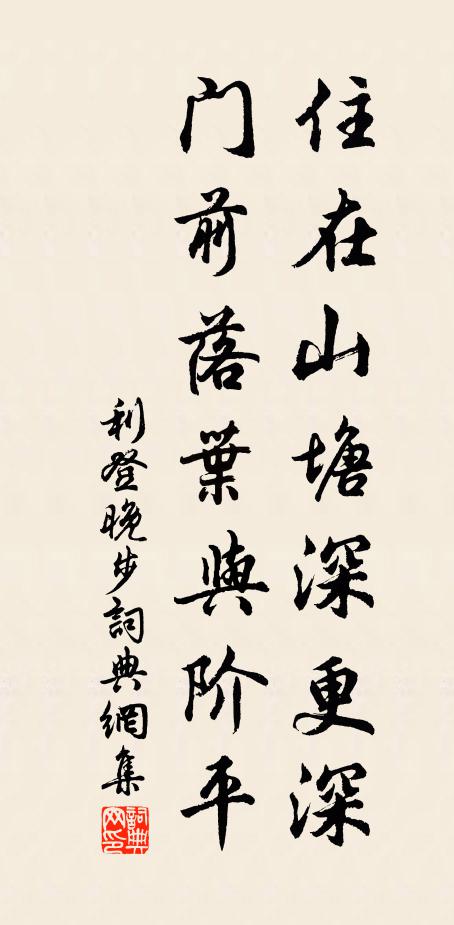 住在山塘深更深
门前落葉與阶平
利登晚步詞典網集
詞典网印